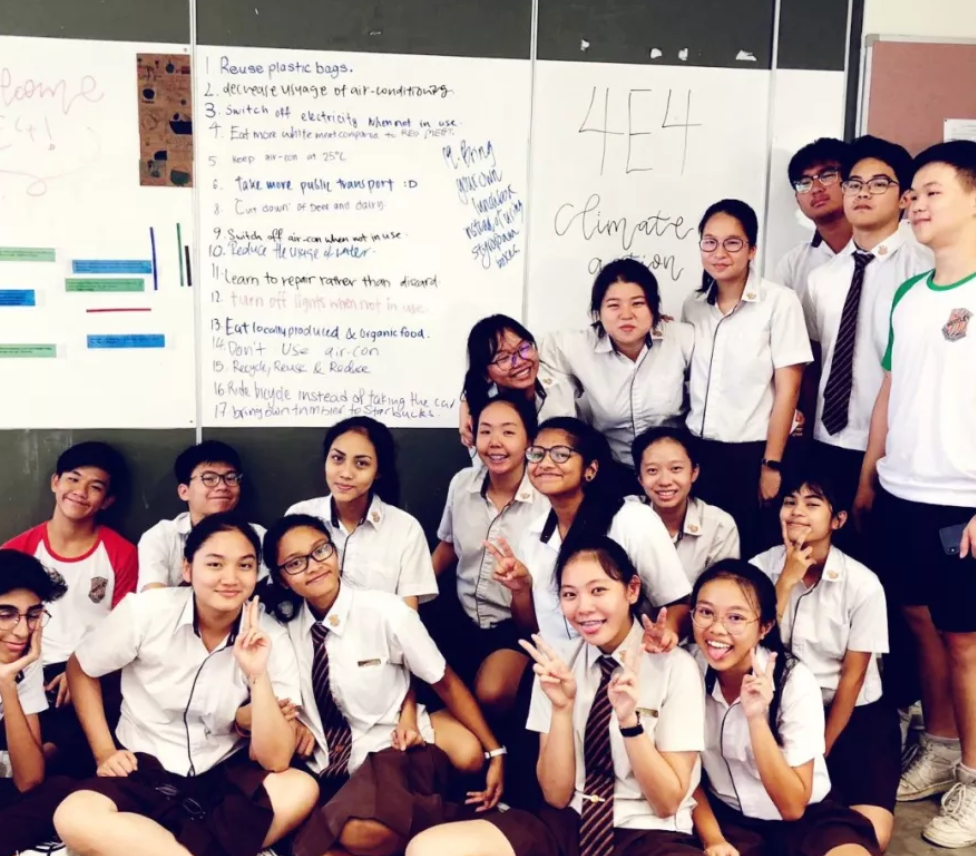 1 Reuse plastic bags.
2. decrease usage of air-conditioning.
3. Switch off electricity when not in use.
4. Eat more white meat compare to RED MEAT.
5 keep air-con at 25°C
6. Take more public transport :D
8. Cut down of beef and dairy.
9. Switch off air-con when not in use.
10. Reduce the usage of water.
11. Learn to repair rather than discard.
12. turn off lights when not in use.
13. Eat locally produced & organic food.
14. Don't use air-con
15. Recycle, Reuse & Reduce
16 Ride bicycle instead of taking the car
17 bring own tumbler to Starbucks.
Bring
your own
lunchbox
instead of using
styrofoam
boxes.
4E4
climate
action
4!